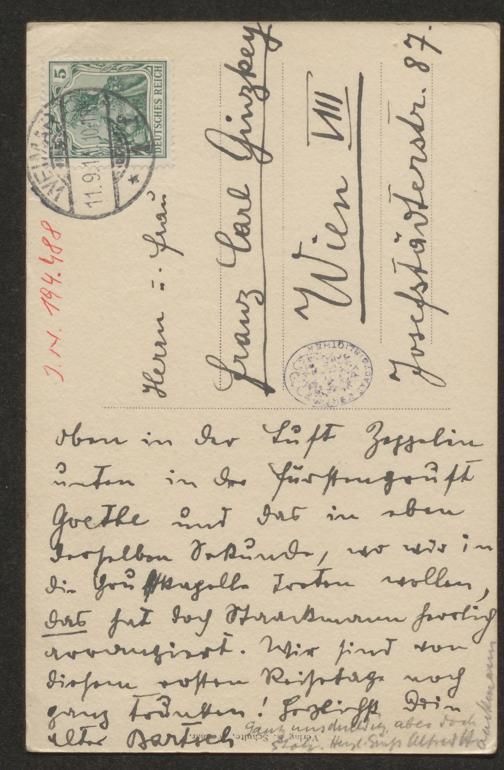 5
DEUTSCHES REICH
WEIMAR
11.9.1
J. N. 194.488
Herrn u. Frau
Franz Carl Ginzkey
Wien VIII
Josefstädterstr. 87.
oben in der Luft Zeppelin
unten in der Fürstengruft
Goethe und das in eben
derselben Sekunde, wo wir in
die Gruftkapelle treten wollen,
das hat doch Staackmann herrlich
arrangiert. Wir sind von
diesem ersten Reisetage noch
ganz trunken! Herzlichst Dein
alter Bartsch
Ganz unschuldig, aber doch
stolz. Herzl. Gruß Alfred Staackmann